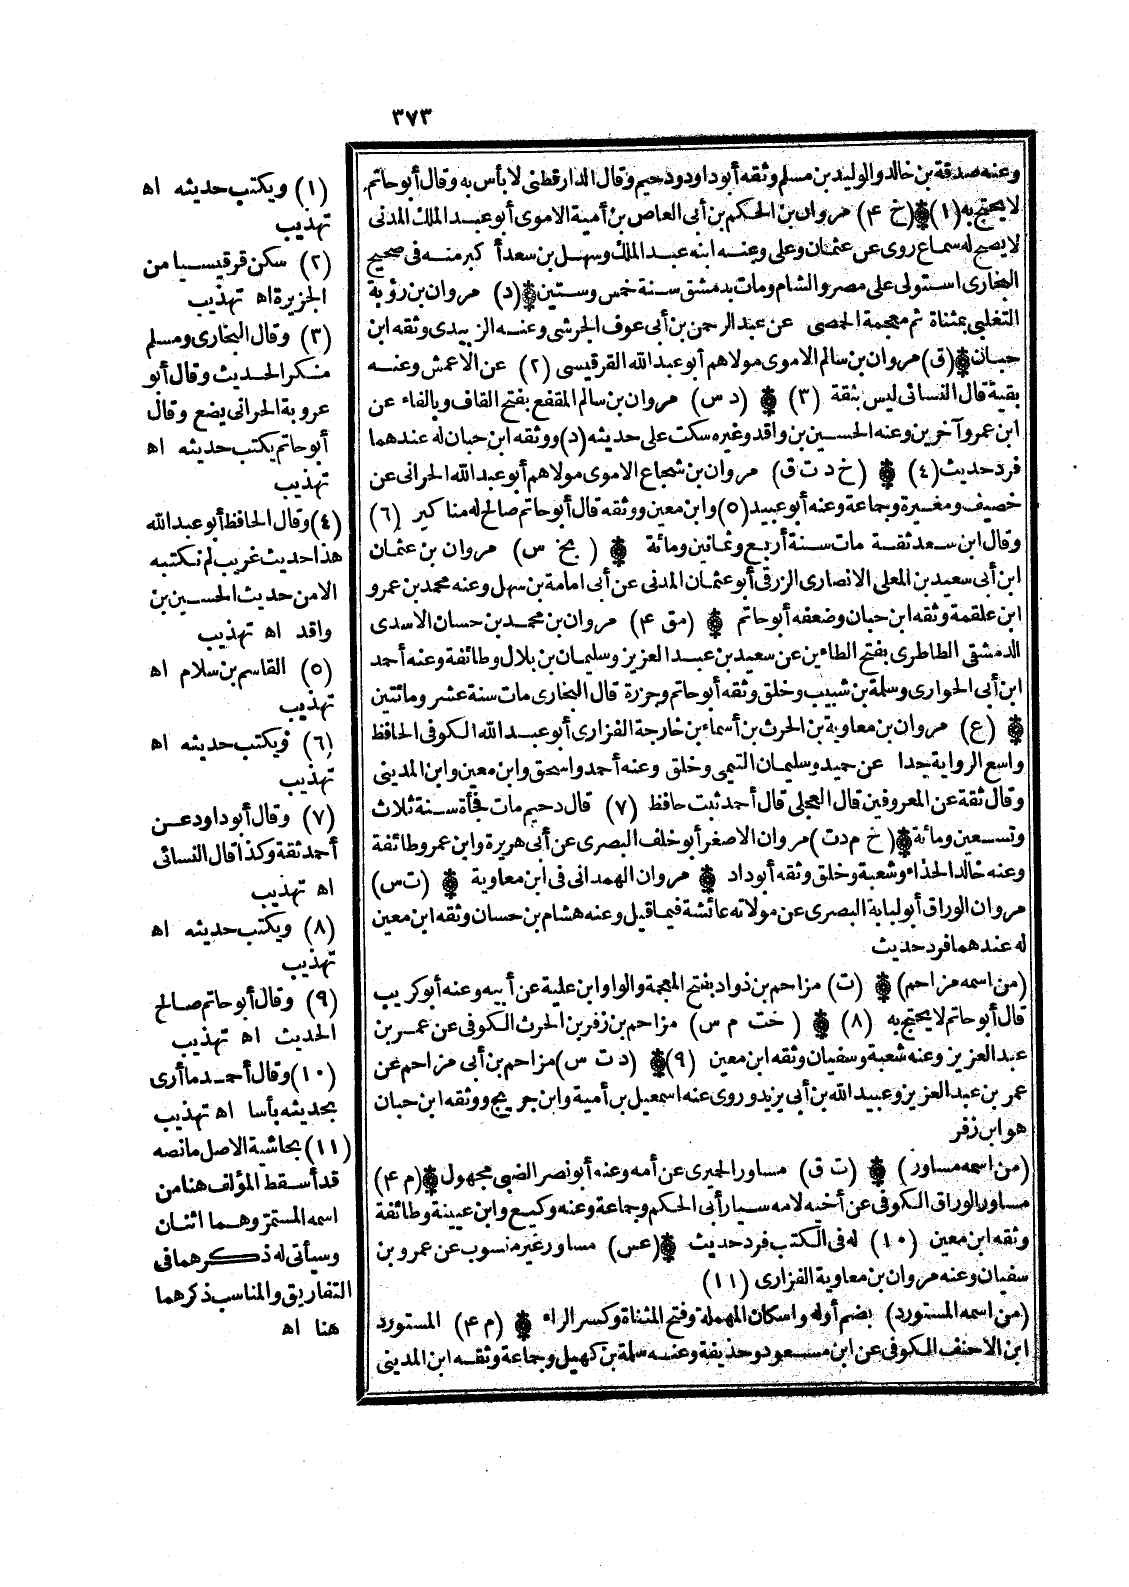 ٣٧٣
وعنه صدقة بن خالد والوليد بن مسلم وثقه أبو داود ودحيم وقال الدارقطنى لا بأس به وقال أبو حاتم
لا يحتج به (١) (خ ٤) مروان بن الحكم بن أبى العاص بن أمية الاموى أبو عبد الملك المدنى
لا يصح له سماع روى عن عثمان وعلى وعنه ابنه عبد الملك وسهل بن سعد أكبر منه فى صحيح
البخارى استولى على مصر والشام ومات بدمشق سنة خمس وستين (د) مروان بن رؤبة
التغلبى بمثناة ثم معجمة الحمصى عن عبد الرحمن بن أبى عوف الجرشى وعنه الزبيدى وثقه ابن
حبان (ق) مروان بن سالم الاموى مولاهم أبو عبد الله القرقيسى (٢) عن الاعمش وعنه
بقية قال النسائى ليس بثقة (٣) (د س) مروان بن سالم المقفع بفتح القاف وبالفاء عن
ابن عمر وآخرين وعنه الحسين بن واقد وغيره سكت على حديثه (د) ووثقه ابن حبان له عندهما
فرد حديث (٤) (خ د ت ق) مروان بن شجاع الاموى مولاهم أبو عبد الله الحرانى عن
خصيف ومغيرة وجماعة وعنه أبو عبيد (٥) وابن معين ووثقه قال أبو حاتم صالح له مناكير (٦)
وقال ابن سعد ثقة مات سنة أربع وثمانين ومائة (بخ س) مروان بن عثمان
ابن أبى سعيد بن المعلى الانصارى الزرقى أبو عثمان المدنى عن أبى امامة بن سهل وعنه محمد بن عمرو
ابن علقمة وثقه ابن حبان وضعفه أبو حاتم (مق ٤) مروان بن محمد بن حسان الاسدى
الدمشقى الطاطرى بفتح الطاءين عن سعيد بن عبد العزيز وسليمان بن بلال وطائفة وعنه أحمد
ابن أبى الحوارى وسلمة بن شبيب وخلق وثقه أبو حاتم وجزرة قال البخارى مات سنة عشر ومائتين
(ع) مروان بن معاوية بن الحرث بن أسماء بن خارجة الفزارى أبو عبد الله الكوفى الحافظ
واسع الرواية جدا عن حميد وسليمان التيمى وخلق وعنه أحمد واسحق وابن معين وابن المدينى
وقال ثقة عن المعروفين قال العجلى قال أحمد ثبت حافظ (٧) قال دحيم مات فجأة سنة ثلاث
وتسعين ومائة (خ م د ت) مروان الاصغر أبو خلف البصرى عن أبى هريرة وابن عمر وطائفة
وعنه خالد الحذاء وشعبة وخلق وثقه أبو داد مروان الهمدانى فى ابن معاوية (ت س)
مروان الوراق أبو لبابة البصرى عن مولاته عائشة فيما قيل وعنه هشام بن حسان وثقه ابن معين
له عندهما فرد حديث
(من اسمه مزاحم) (ت) مزاحم بن ذواد بفتح المعجمة والواو ابن علية عن أبيه وعنه أبو كريب
قال أبو حاتم لا يحتج به (٨) (خت م س) مزاحم بن زفر بن الحرث الكوفى عن عمر بن
عبد العزيز وعنه شعبة وسفيان وثقه ابن معين (٩) (د ت س) مزاحم بن أبى مزاحم عن
عمر بن عبد العزيز وعبيد الله بن أبى يزيد وروى عنه اسمعيل بن أمية وابن جريج ووثقه ابن حبان
هو ابن زفر
(من اسمه مساور) (ت ق) مساور الحميرى عن أمه وعنه أبو نصر الضبى مجهول (م ٤)
مساور الوراق الكوفى عن أخيه لامه سيار أبى الحكم وجماعة وعنه وكيع وابن عيينة وطائفة
وثقه ابن معين (١٠) له فى الكتب فرد حديث (عس) مساور غير منسوب عن عمرو بن
سفيان وعنه مروان بن معاوية الفزارى (١١)
(من اسمه المستورد) بضم أوله واسكان المهملة وفتح المثناة وكسر الراء (م ٤) المستورد
ابن الاحنف الكوفى عن ابن مسعود وحذيفة وعنه سلمة بن كهيل وجماعة وثقه ابن المدينى
(١) ويكتب حديثه اه
تهذيب
(٢) سكن قرقيسيا من
الجزيرة اه تهذيب
(٣) وقال البخارى ومسلم
منكر الحديث وقال أبو
عروبة الحرانى يضع وقال
أبو حاتم يكتب حديثه اه
تهذيب
(٤) وقال الحافظ أبو عبد الله
هذا حديث غريب لم نكتبه
الا من حديث الحسين بن
واقد اه تهذيب
(٥) القاسم بن سلام اه
تهذيب
(٦) ويكتب حديثه اه
تهذيب
(٧) وقال أبو داود عن
أحمد ثقة وكذا قال النسائى
اه تهذيب
(٨) ويكتب حديثه اه
تهذيب
(٩) وقال أبو حاتم صالح
الحديث اه تهذيب
(١٠) وقال أحمد ما أرى
بحديثه بأسا اه تهذيب
(١١) بحاشية الاصل ما نصه
قد أسقط المؤلف هنا من
اسمه المستمر وهما اثنان
وسيأتى له ذكرهما فى
التفاريق والمناسب ذكرهما
هنا اه